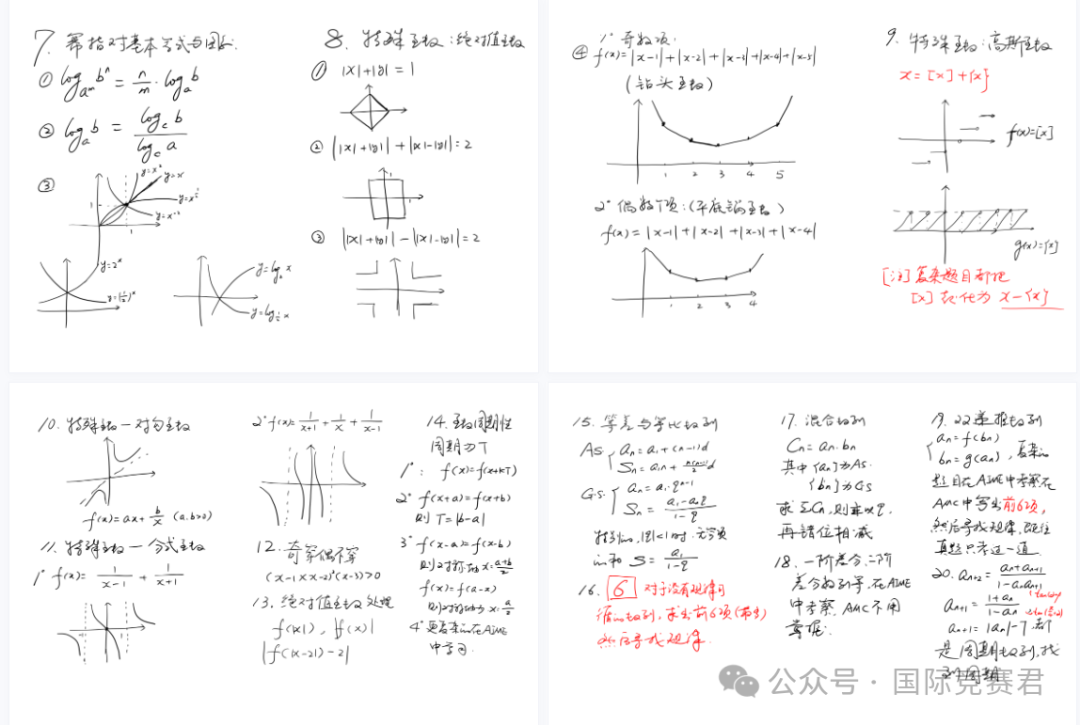 7. 幂指对基本公式与图象.
① log_{a^m} b^n = n/m · log_a b
② log_a b = log_c b / log_c a
③
y=x²
y=x
y=x^{1/2}
y=x^{-1}
1
1
y=2^x
y=(1/2)^x
y=log_2 x
y=log_{1/2} x
8. 特殊函数:绝对值函数
① |x|+|y|=1
② ||x|+|y||+||x|-|y||=2
③ ||x|+|y||-||x|-|y||=2
1° 奇数项:
④ f(x)=|x-1|+|x-2|+|x-3|+|x-4|+|x-5|
(钻头函数)
1 2 3 4 5
2° 偶数项:(平底锅函数)
f(x)=|x-1|+|x-2|+|x-3|+|x-4|
1 2 3 4
9. 特殊函数:高斯函数
x=[x]+{x}
f(x)=[x]
g(x)={x}
[注]复杂题目都把
[x] 转化为 x-{x}
10. 特殊函数—对勾函数
f(x)=ax+b/x (a.b>0)
11. 特殊函数—分式函数
1° f(x)= 1/(x-1) + 1/(x+1)
2° f(x)= 1/(x+1) + 1/x + 1/(x-1)
12. 奇穿偶不穿
(x-1)(x-2)²(x-3)>0
13. 绝对值函数处理
f(|x|), |f(x)|
|f(|x-2|)-2|
14. 函数周期性
周期为T
1°: f(x)=f(x+kT)
2° f(x+a)=f(x+b)
则 T=|b-a|
3° f(x-a)=f(x-b)
则对称轴x=(a+b)/2
f(x)=f(a-x)
则对称轴为 x=a/2
4° 更复杂的在AIME
中学习.
15. 等差与等比数列
A.S { a_n=a_1+(n-1)d
S_n=a_1n+ n(n-1)/2 d
G.S. { a_n=a_1·q^{n-1}
S_n= (a_1-a_nq)/(1-q)
特别地, |q|<1时, 无穷项
求和 S= a_1/(1-q)
16. 6 对于没有规律的
数列, 求出前6项
然后寻找规律.
17. 混合数列
C_n=a_n·b_n
其中{a_n}为A.S.
{b_n}为G.S
求ΣC_n, 则乘以q,
再错位相减
18. 一阶差分,二阶
差分数列等,在AIME
中考察, AMC不用
掌握.
19. 双递推数列
{ a_n=f(b_n)
b_n=g(a_n), 复杂的
题目在AIME中考察在
AMC中写出前6项,
然后寻找规律,
真题只考过一道
20. a_{n+2}= (a_n+a_{n+1})/(1-a_n a_{n+1})
a_{n+1}= (1+a_n)/(1-a_n)
a_{n+1}=|a_n|-7, 都
是周期数列, 找
到周期
公众号 · 国际竞赛君